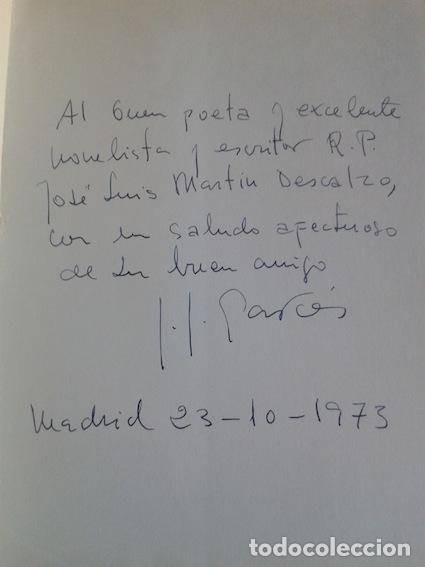 Al buen poeta y excelente
novelista y escritor R.P.
José Luis Martín Descalzo,
con un saludo afectuoso
de su buen amigo
J. J. Garcés
Madrid 23-10-1973
todocoleccion.net